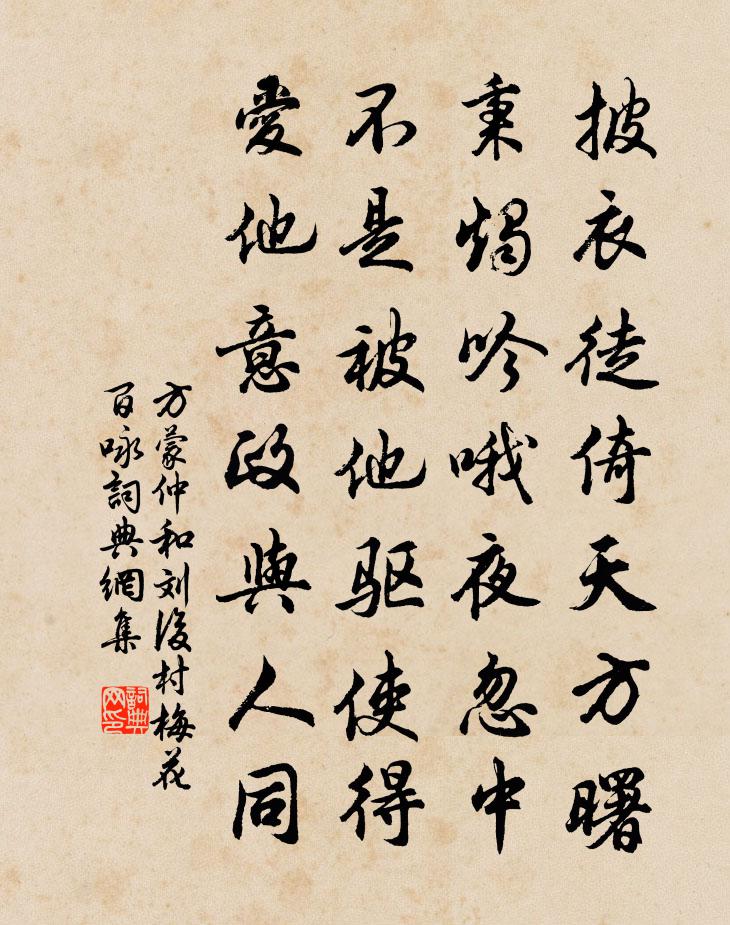 披衣徒倚天方曙
秉燭吟哦夜忽中
不是被他驱使得
愛他意政與人同
方蒙仲和刘後村梅花
百咏詞典網集
詞典
网印